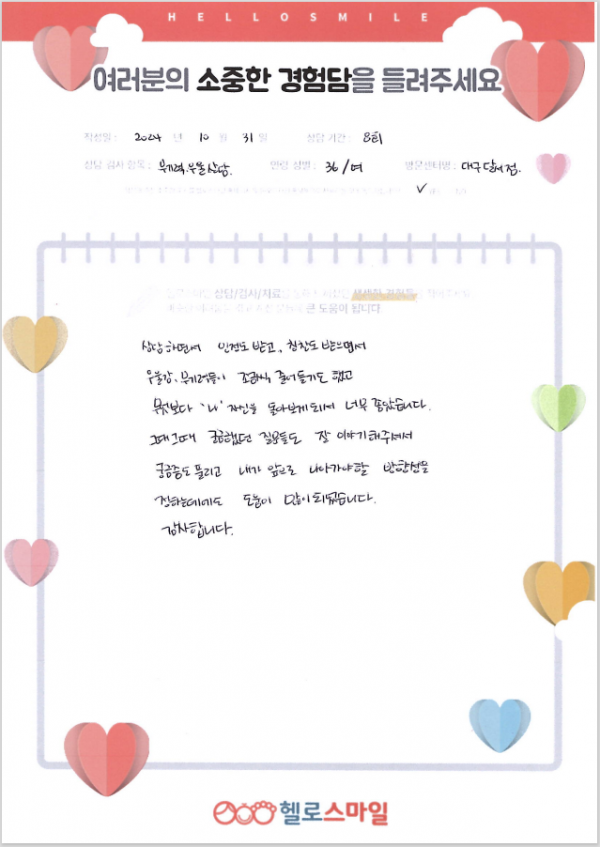 HELLOSMILE
여러분의 소중한 경험담을 들려주세요
작성일 : 2024 년 10 월 31 일 상담 기간 : 8회
상담 검사 항목 : 무기력, 우울 상담. 연령 성별 : 36/여 방문센터명 : 대구 달서점.
✓
상담/검사/치료
큰 도움이 됩니다
상담하면서 인정도 받고, 칭찬도 받으면서
우울감, 무기력들이 조금씩 줄어들기도 했고
무엇보다 '나' 자신을 돌아보게 되서 너무 좋았습니다.
그때그때 궁금했던 질문들도 잘 이야기해주셔서
궁금증도 풀리고 내가 앞으로 나아가야할 방향성을
정하는데에도 도움이 많이 되었습니다.
감사합니다.
헬로스마일